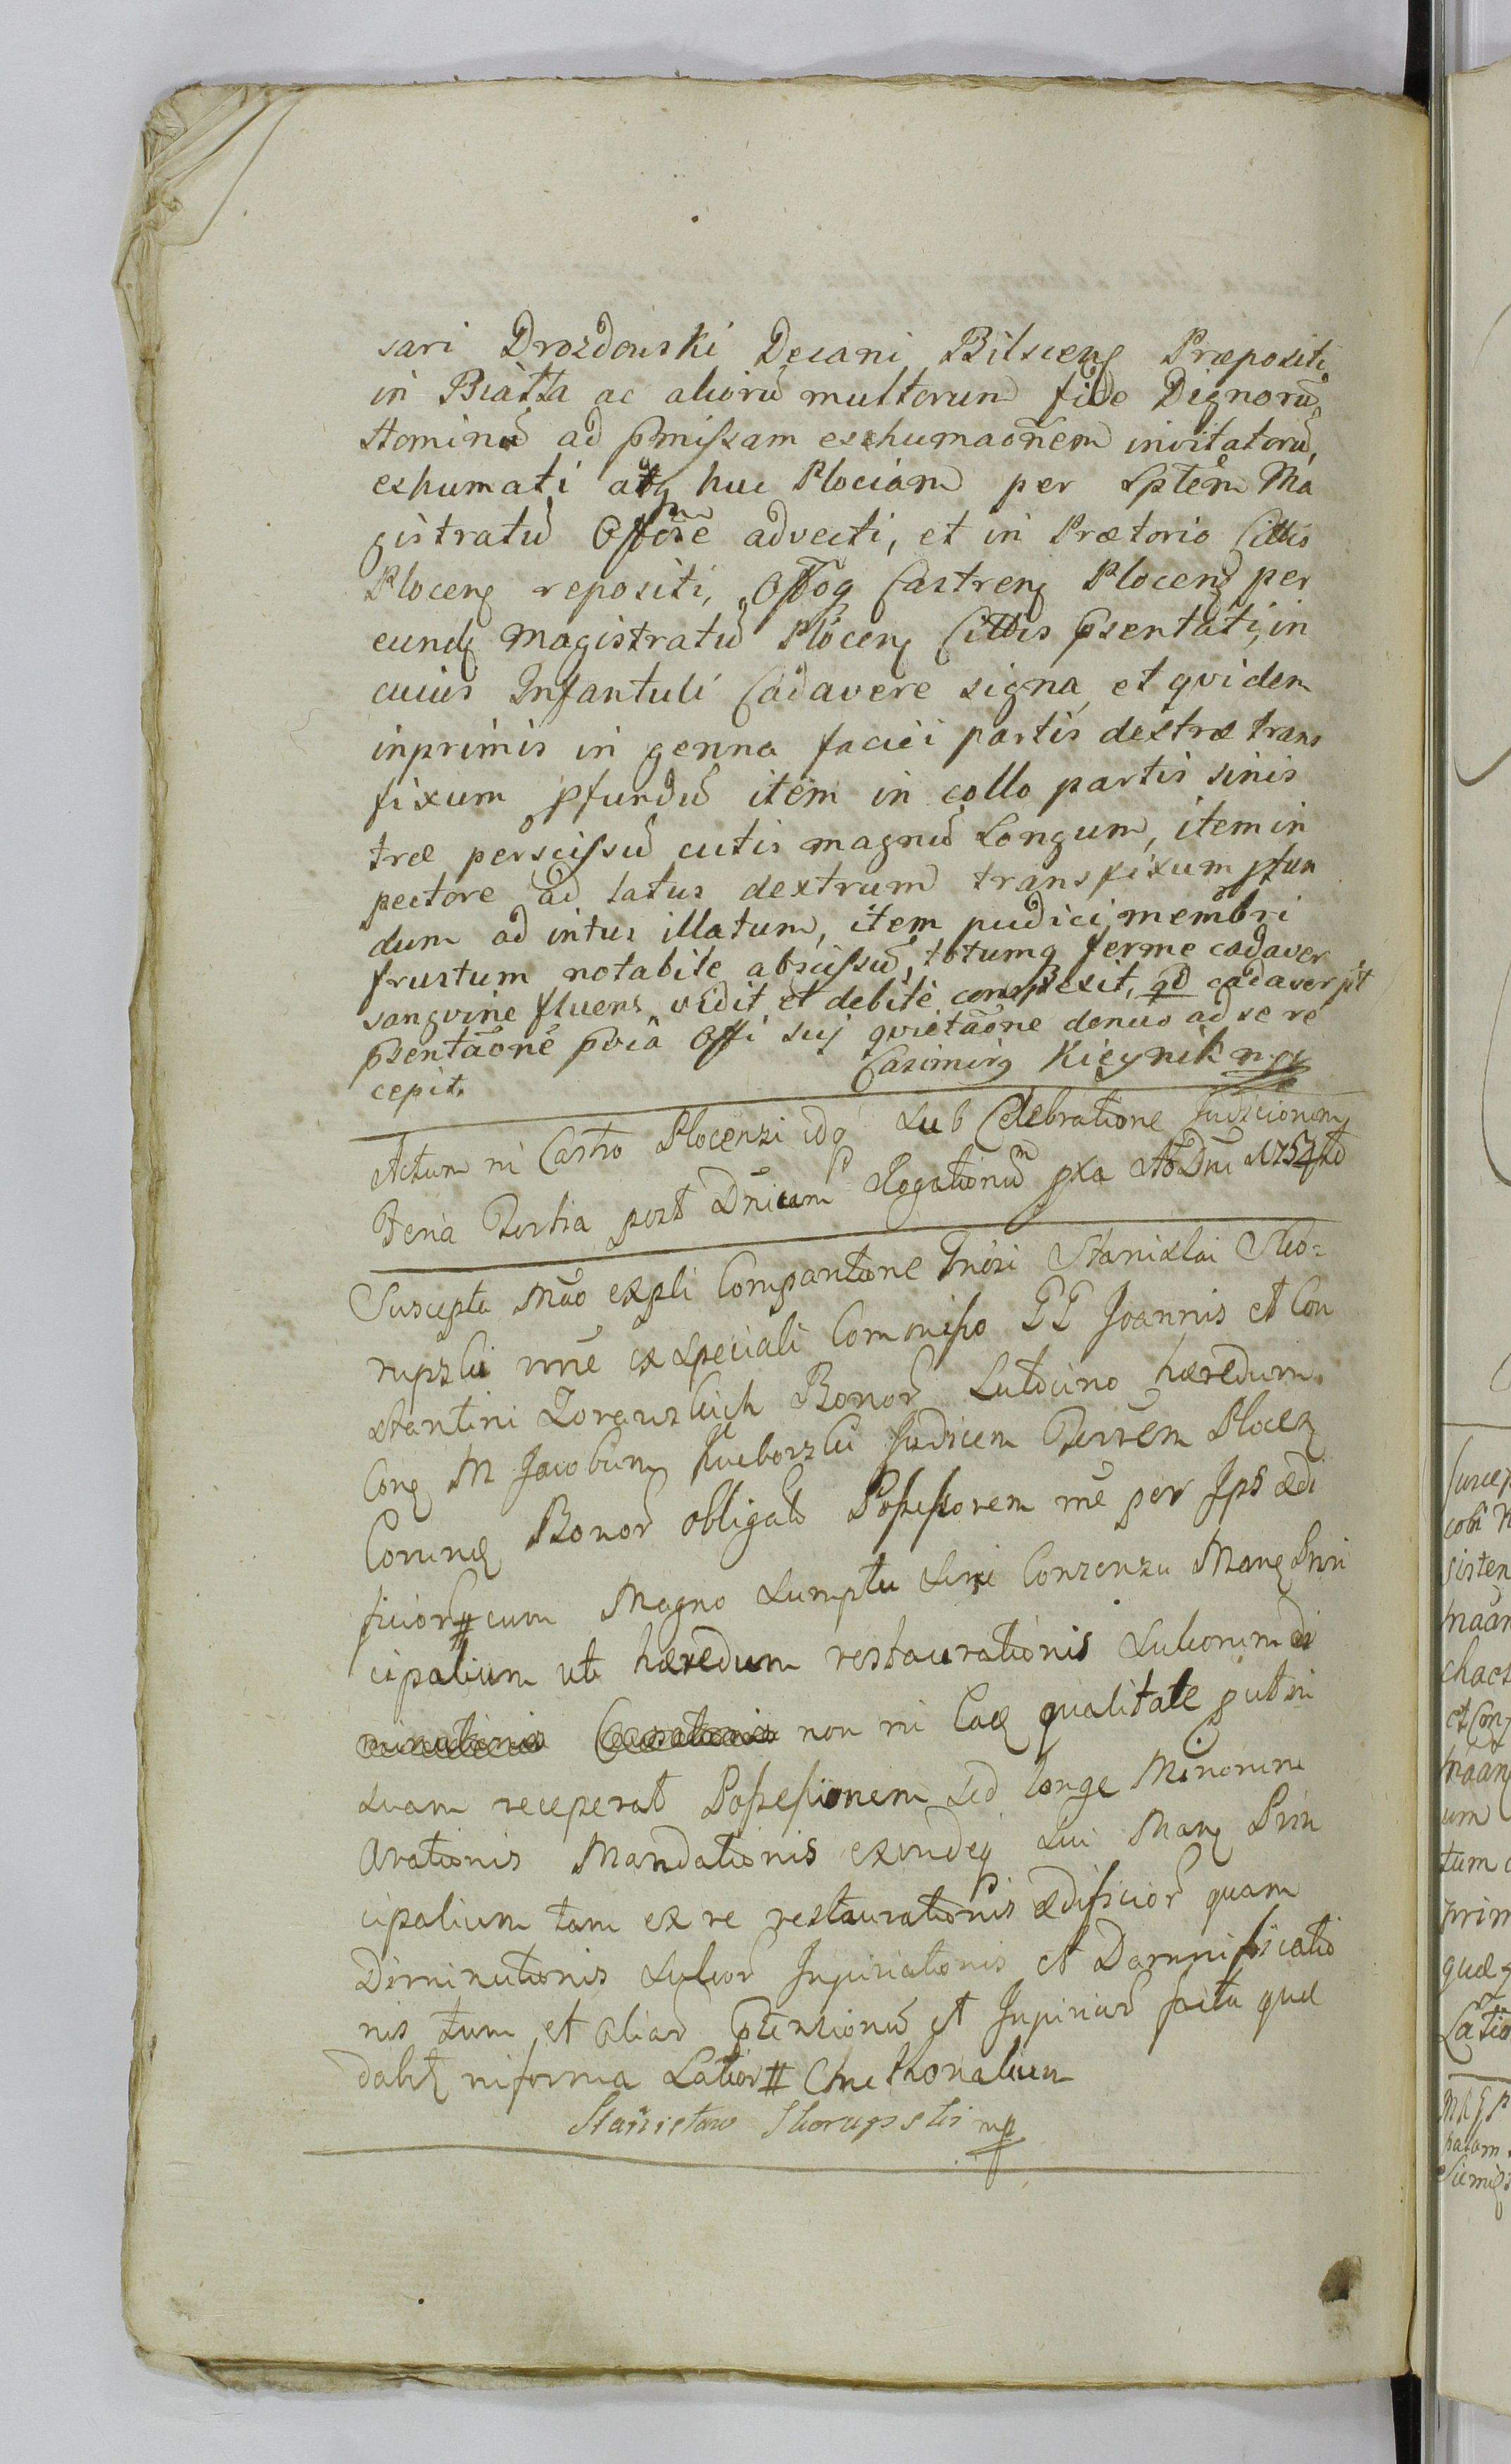 sari Drozdowski Decani Bilscens Præpositi
in Białła ac aliorū multorum fide Dignorū
Hominū ad pmissam exhumaõnem invitatorū,
exhumati atq huc Plociam per Sptem Ma
gistratū Offose advecti, et in Prætorio Cittis
Plocens repositi, Offoq Castrens Plocens per
eund Magistratū Plocens Cittis psentati, in
cuius Infantuli Cadavere signa, et qvidem
inprimis in genna faciei partis dextræ trans
fixum pfundū item in collo partis sinis
træ perscissū cutis magnū Longum, item in
pectore ad latus dextrum transfixum pfun
dum ad intus illatum, item pudici membri
frustum notabile abscissū, totumq ferme cadaver
sangvine fluens vidit et debitè conspexit, qd cadaver pst
psentaõne pvia Offi sui qvietaõne denuo ad se re
cepit. Casimirq Kicynik mp
Actum in Castro Plocensi idq Sub Celebratione Judiciorum
Feria Tertia post Dnicam Rogationū pxa Ao Dni 1754to
Suscepta Mão expli Comparitione Gnosi Stanislai Sko=
rupski nne ex speciali Commisso GG Joannis et Con
stantini Zorawskich Bonor Sulocino hæredum
Cong M Jacobum Kucborski Judicem Terrem Plocen
Eorund Bonor obligato Possessorem me per Ips ædi
ficior # cum Magno Sumptu Sine Consensu Mang Prin
cipalium uti hæredum restaurationis Sulcorum di
non in Ead qualitate put in
Suam receperat Possessionem Sed longe Minorum
Arationis Mandationis exindeq Sui Mang Prin
cipalium tam ex re restaurationis ædificior quam
Diminutionis Sulcor Injuriationis et Damnificatio
nis tum et aliar ptensionū et Injuriar facta quæ
dabit in forma Latior # Cmethonalium
Stanisław Skorupski mp